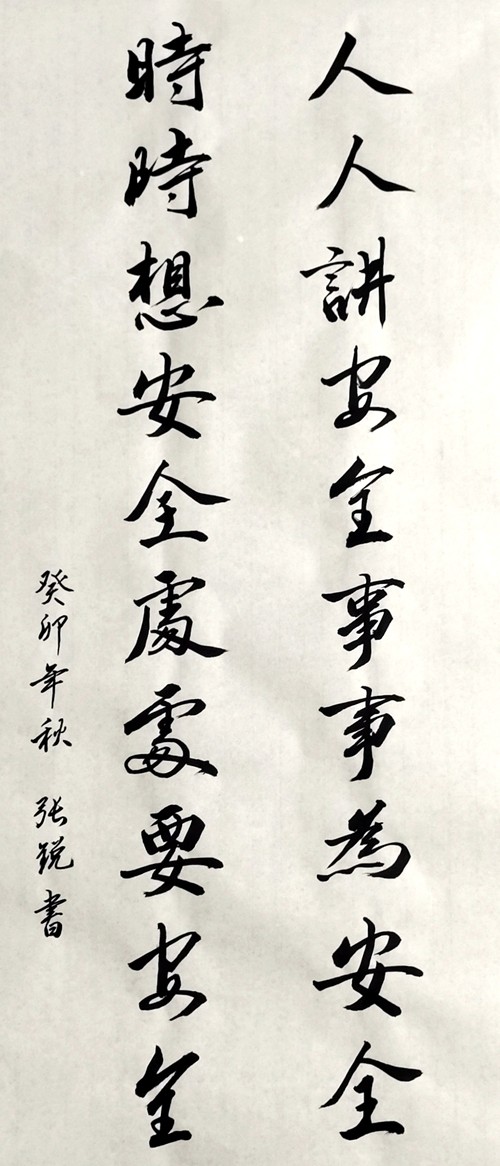 人人講安全事事為安全
時時想安全處處要安全
癸卯年秋 张锐書